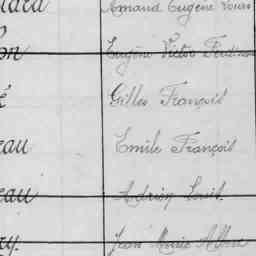 Armand Eugène Louis
Eugène Victor Ferdinand
Gilles François
eau Emile François
eau Adrien Louis
Jean Marie Albert